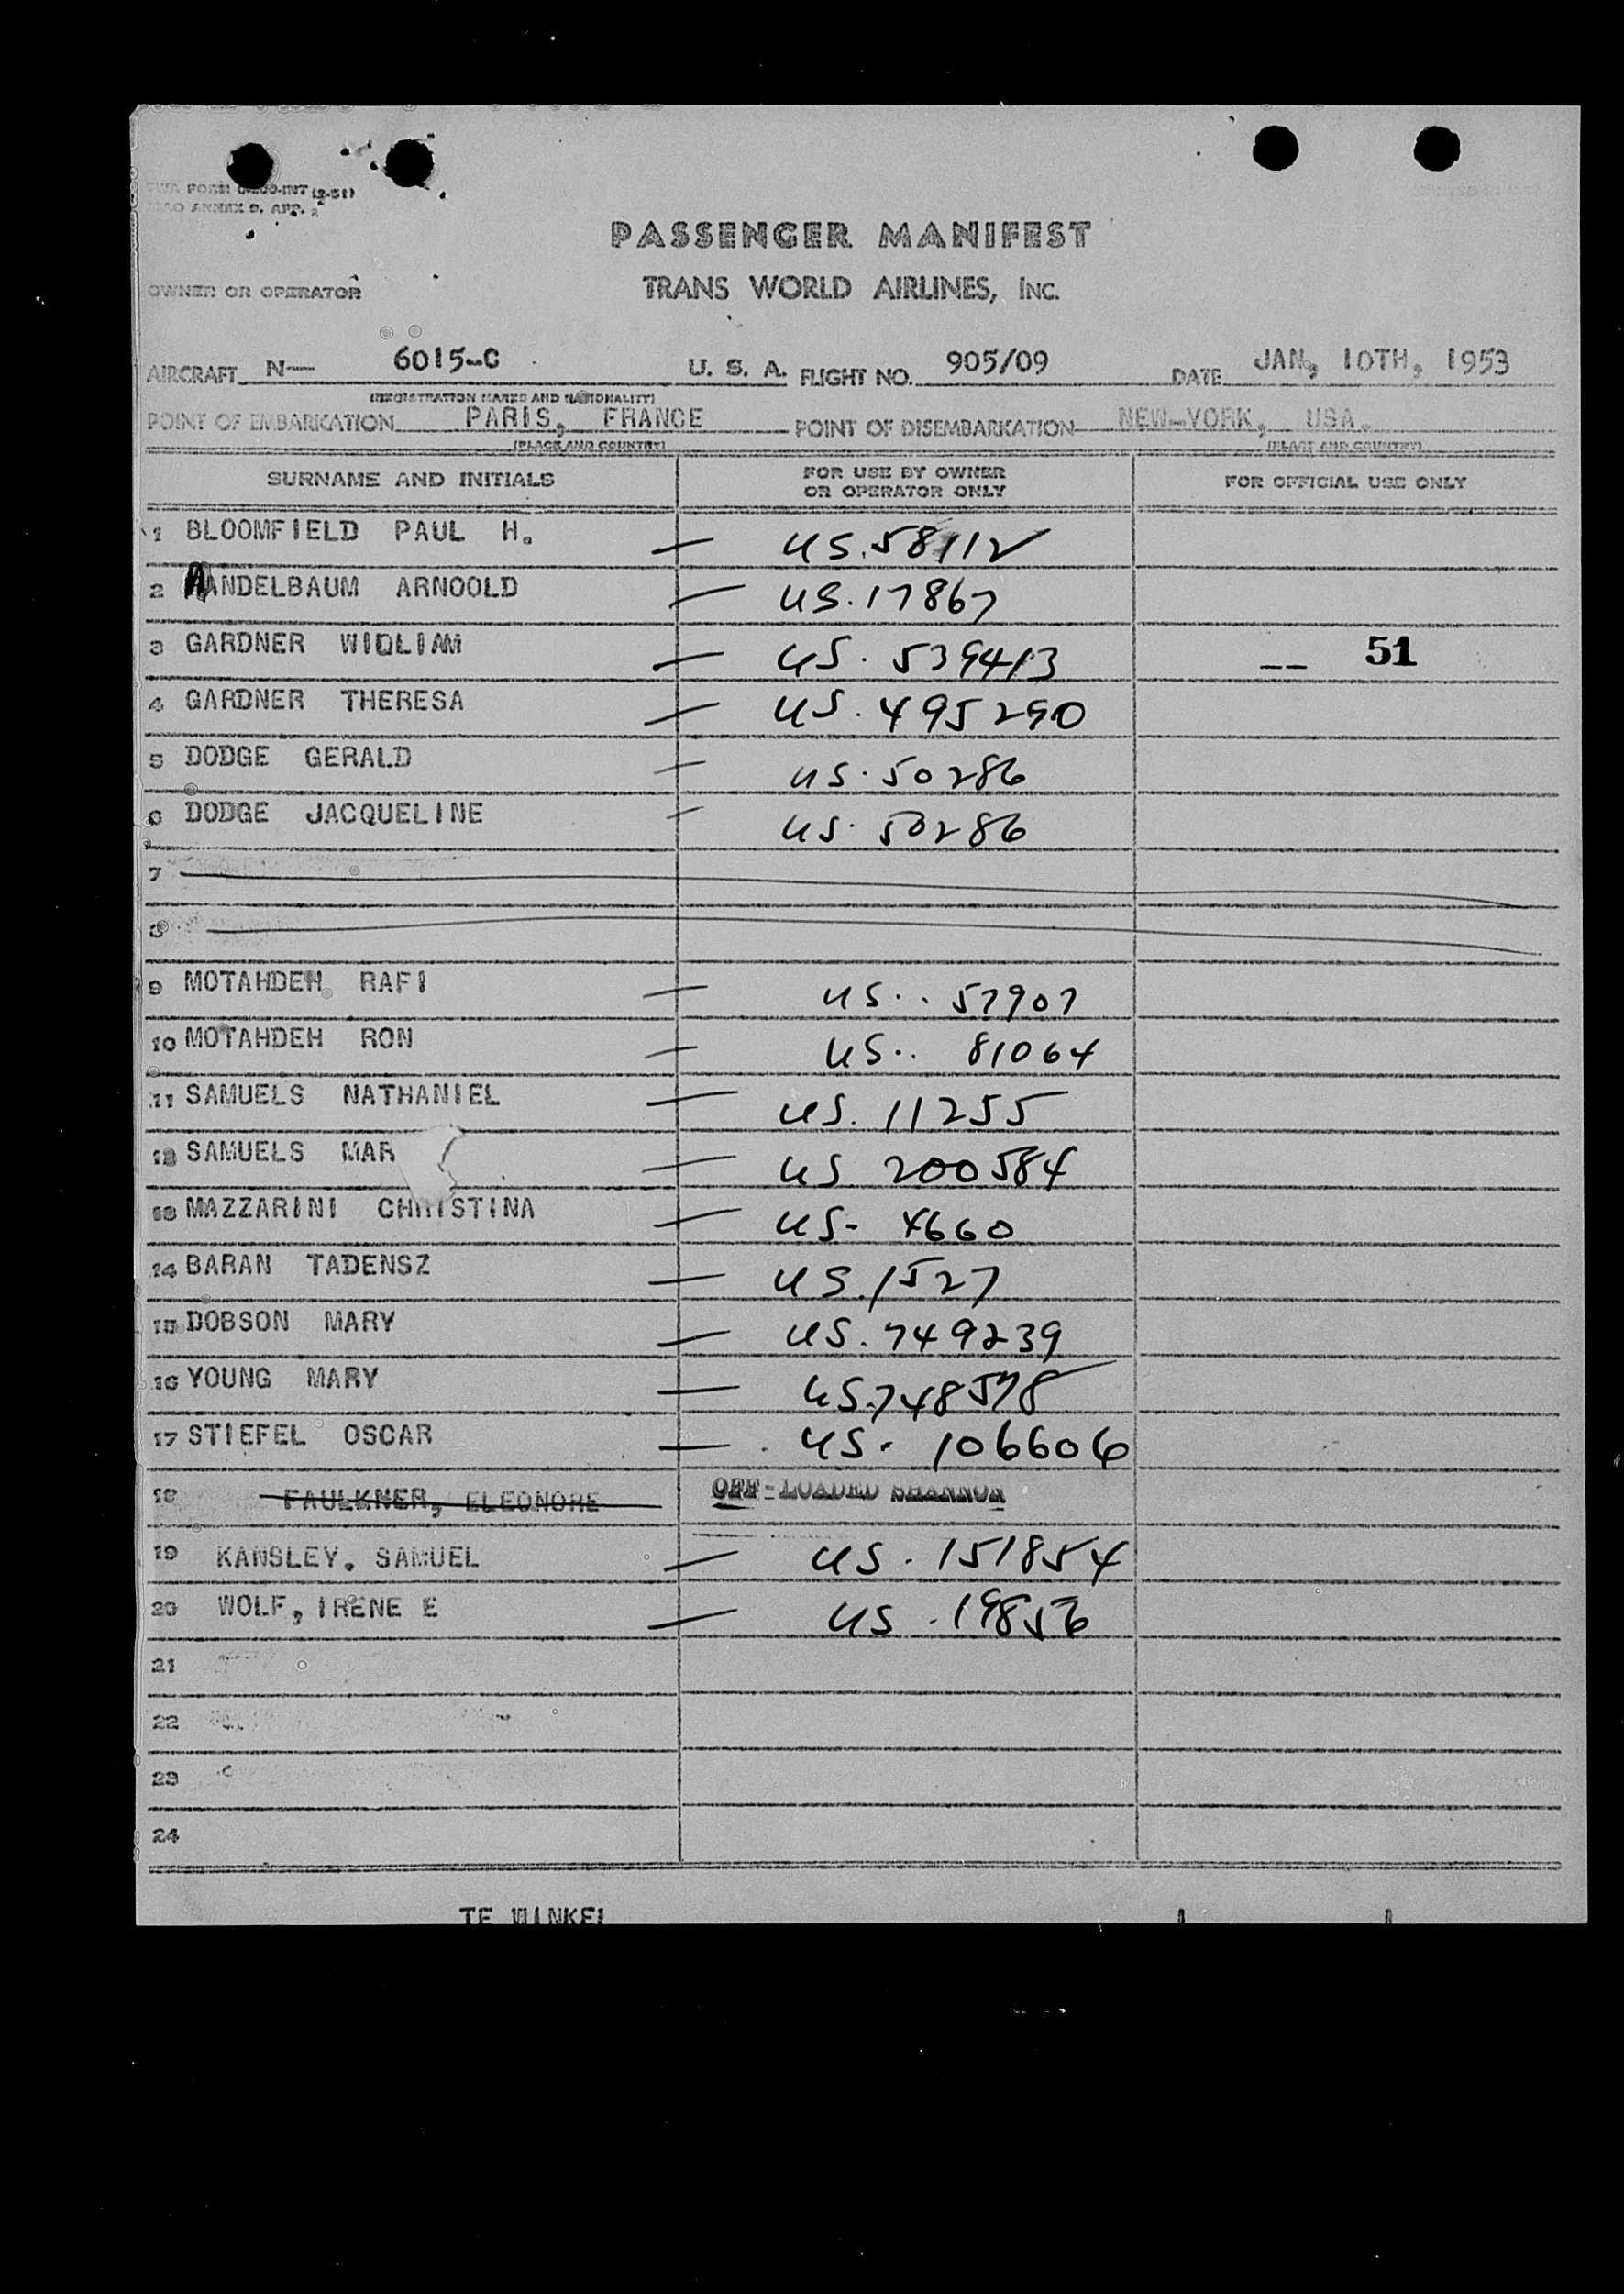 TWA FORM (2-51)
ICAO ANNEX 9, APP.
PASSENGER MANIFEST
OWNER OR OPERATOR TRANS WORLD AIRLINES, INC.
AIRCRAFT N— 6015-C U. S. A. FLIGHT NO. 905/09 DATE JAN, 10TH, 1953
(REGISTRATION MARKS AND NATIONALITY)
POINT OF EMBARKATION PARIS, FRANCE POINT OF DISEMBARKATION NEW-YORK, USA.
(PLACE AND COUNTRY) (PLACE AND COUNTRY)
SURNAME AND INITIALS FOR USE BY OWNER OR OPERATOR ONLY FOR OFFICIAL USE ONLY
1 BLOOMFIELD PAUL H. — US. 58112
2 ANDELBAUM ARNOOLD — US. 17867
3 GARDNER WIOLIAM — US. 539413 -- 51
4 GARDNER THERESA — US. 495290
5 DODGE GERALD — US. 50286
6 DODGE JACQUELINE — US. 50286
7
8
9 MOTAHDEH RAFI — US.. 57907
10 MOTAHDEH RON — US.. 81064
11 SAMUELS NATHANIEL — US. 11255
12 SAMUELS MAR — US 200584
13 MAZZARINI CHRISTINA — US- 4660
14 BARAN TADENSZ — US. 1527
15 DOBSON MARY — US. 749239
16 YOUNG MARY — US. 748578
17 STIEFEL OSCAR — US. 106606
18 FAULKNER, ELEONORE OFF-LOADED SHANNON
19 KANSLEY. SAMUEL — US. 151854
20 WOLF, IRENE E — US. 19856
21
22
23
24
TE WINKEL